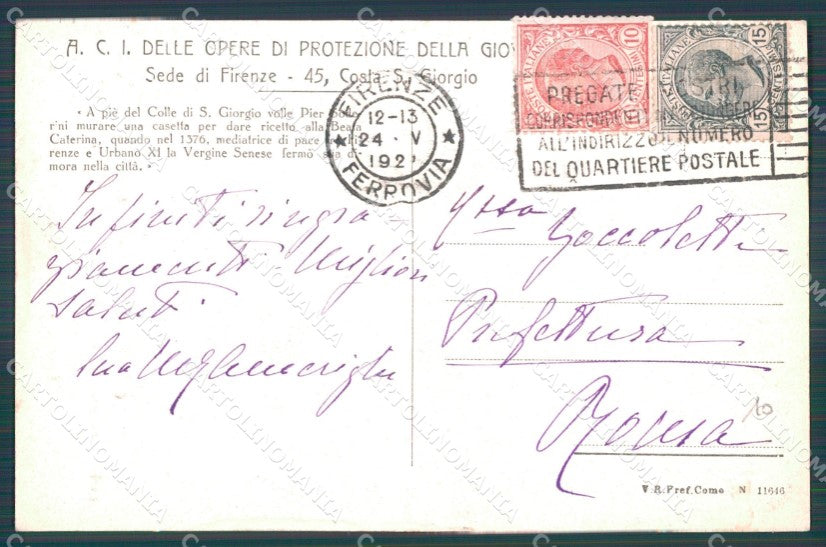 A. C. I. DELLE OPERE DI PROTEZIONE DELLA GIOV
Sede di Firenze - 45, Costa S. Giorgio
« A piè del Colle di S. Giorgio volle Pier
rini murare una casetta per dare ricetto alla Beata
Caterina, quando nel 1376, mediatrice di pace
renze e Urbano XI la Vergine Senese fermò
mora nella città. »
FIRENZE
12-13
24 V
192
FERROVIA
POSTE ITALIANE
10
POSTE ITALIANE
15
15
PREGATE
ALL'INDIRIZZO IL NUMERO
DEL QUARTIERE POSTALE
Infiniti ringra
ziamenti Migliori
saluti
Zoccoletti
Prefettura
Roma
10
V. R. Pref. Como N 11646
CARTOLINOMANIA